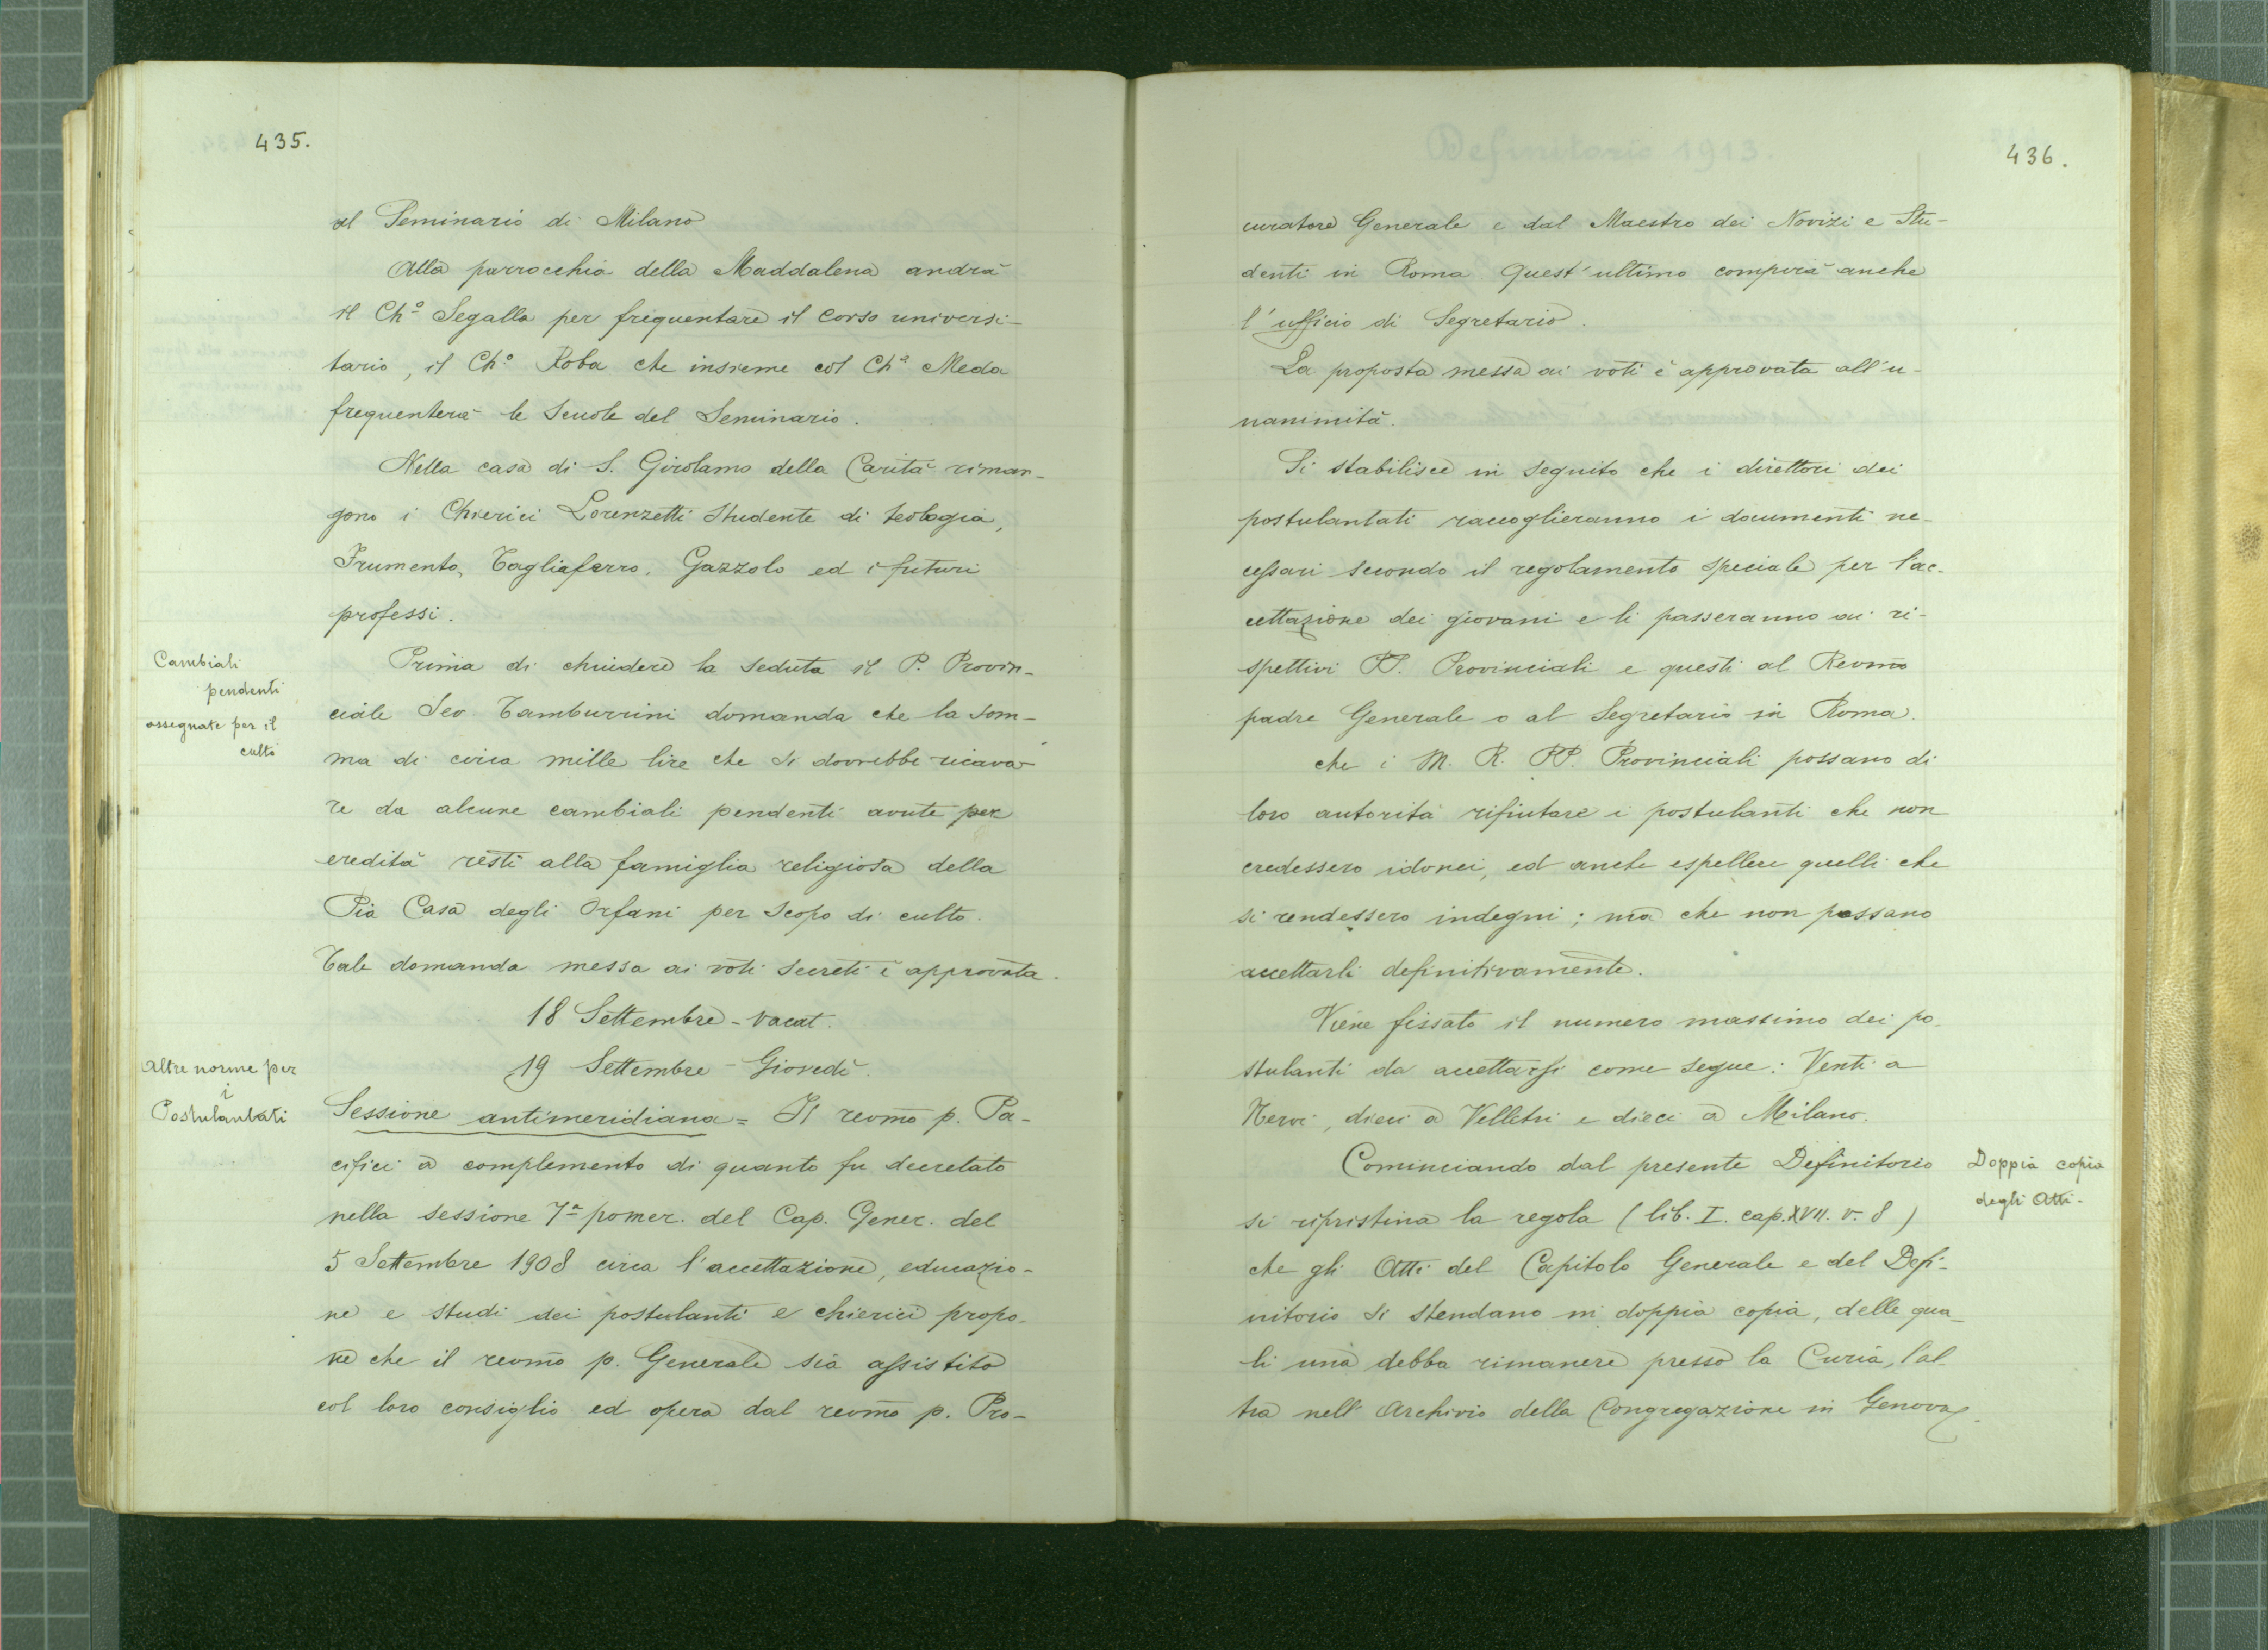 435.
al Seminario di Milano
Alla parrocchia della Maddalena andrà
il Ch.º Segalla per frequentare il corso universi-
tario, il Ch.º Roba che insieme col Ch.º Meda
frequenterà le Scuole del Seminario.
Nella casa di S. Girolamo della Carità riman-
gono i Chierici Lorenzetti studente di teologia,
Frumento, Tagliaferro, Gazzolo ed i futuri
professi.
Cambiali
pendenti
assegnate per il
culto
Prima di chiudere la seduta il P. Provin-
ciale Tamburrini domanda che la som-
ma di circa mille lire che si dovrebbe ricava-
re da alcune cambiali pendenti avute per
eredità resti alla famiglia religiosa della
Pia Casa degli Orfani per scopo di culto.
Tale domanda messa ai voti secreti è approvata.
18 Settembre - vacat.
19 Settembre - Giovedì.
Altre norme per
i
Postulantati
Sessione antimeridiana = Il revmo p. Pa-
cifici a complemento di quanto fu decretato
nella sessione 7ª pomer. del Cap. Gener. del
5 Settembre 1908 circa l'accettazione, educazio-
ne e studi dei postulanti e chierici propo-
ne che il revmo p. Generale sia assistito
col loro consiglio ed opera dal revmo p. Pro-
436.
curatore Generale e dal Maestro dei Novizi e Stu-
denti in Roma. Quest'ultimo compirà anche
l'ufficio di Segretario.
La proposta messa ai voti è approvata all'u-
nanimità.
Si stabilisce in seguito che i direttori dei
postulantati raccoglieranno i documenti ne-
cessari secondo il regolamento speciale per l'ac-
cettazione dei giovani e li passeranno ai ri-
spettivi PP. Provinciali e questi al Revmo
padre Generale o al Segretario in Roma.
che i M. R. PP. Provinciali possano di
loro autorità rifiutare i postulanti che non
credessero idonei, ed anche espellere quelli che
si rendessero indegni; ma che non possano
accettarli definitivamente.
Viene fissato il numero massimo dei po-
stulanti da accettarsi come segue: Venti a
Nervi, dieci a Velletri e dieci a Milano.
Doppia copia
degli Atti.
Cominciando dal presente Definitorio
si ripristina la regola (lib. I. cap. XVII. v. 8)
che gli Atti del Capitolo Generale e del Defi-
nitorio si stendano in doppia copia, delle qua-
li una debba rimanere presso la Curia, l'al-
tra nell'Archivio della Congregazione in Genova.